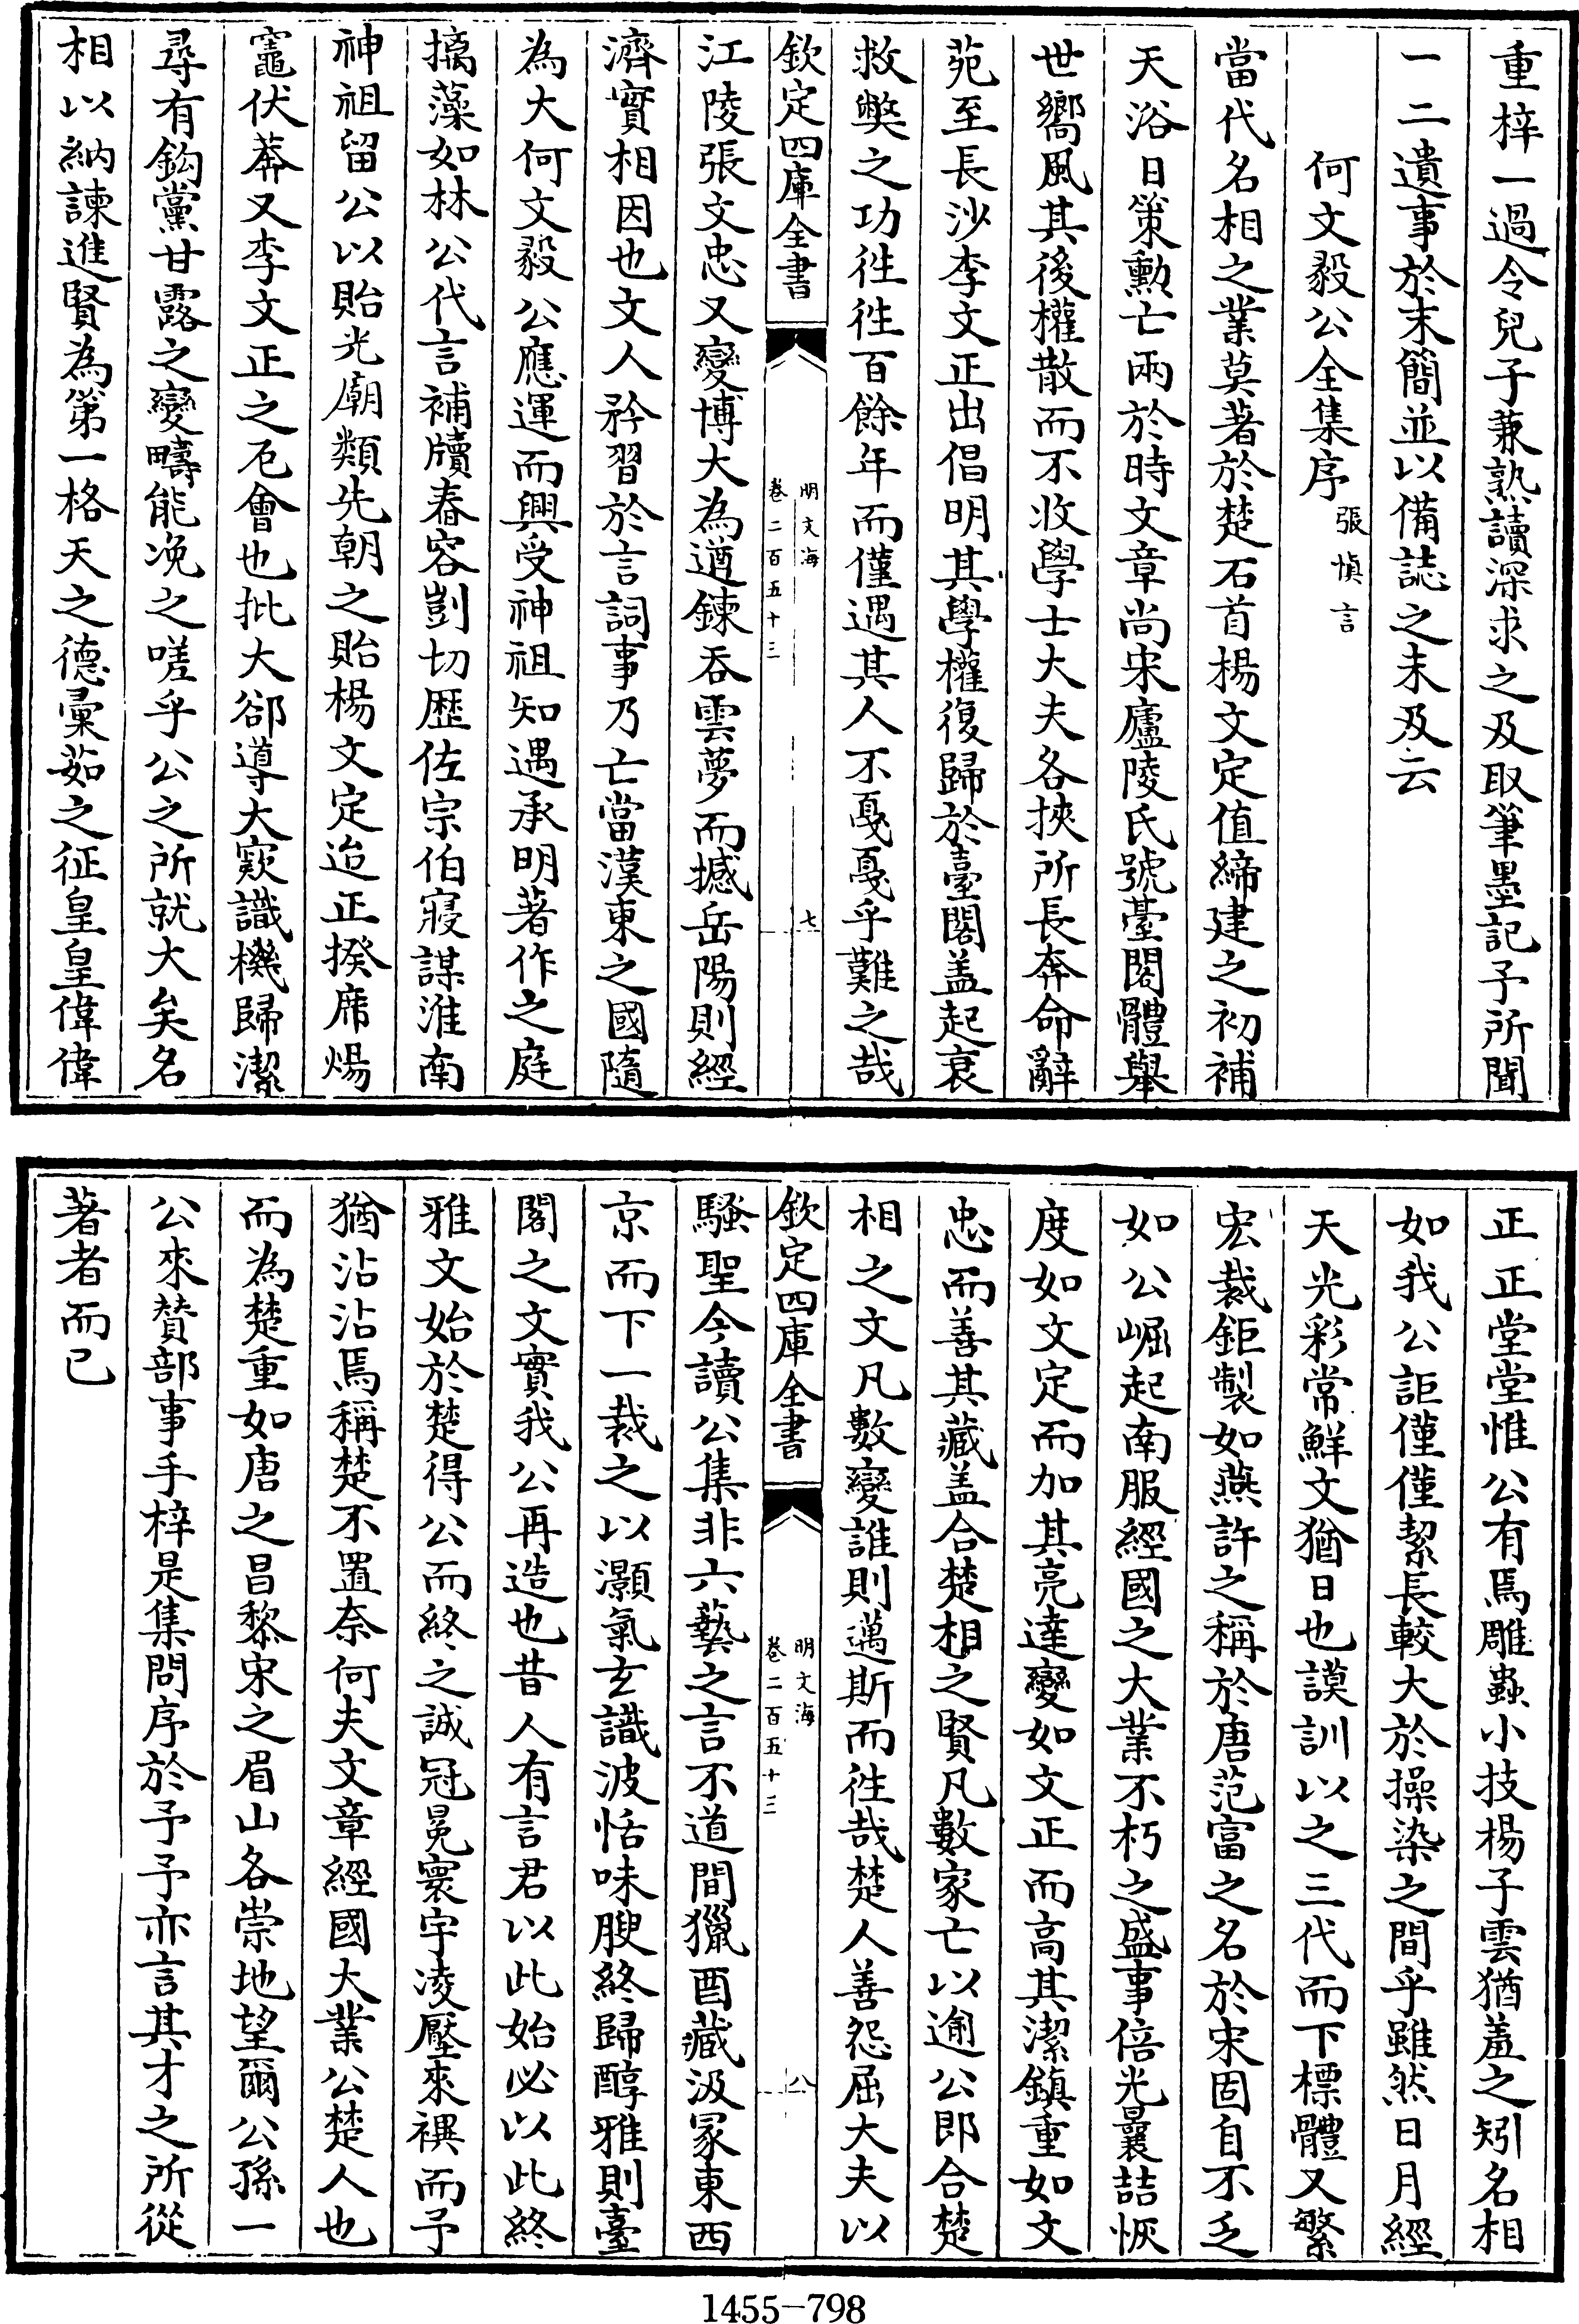 重梓一過令兒子兼熟讀深求之及取筆墨記予所聞
一二遺事於末簡並以備誌之未及云
何文毅公全集序 張慎言
當代名相之業莫著於楚石首楊文定值締建之初補
天浴日策勳亡兩於時文章尚宋廬陵氏號臺閣體舉
世嚮風其後權散而不收學士大夫各挾所長奔命辭
苑至長沙李文正出倡明其學權復歸於臺閣盖起衰
救弊之功徃徃百餘年而僅遇其人不戞戞乎難之哉
欽定四庫全書
明文海
卷二百五十三
七
江陵張文忠又變博大為遒鍊吞雲夢而撼岳陽則經
濟實相因也文人矜習於言詞事乃亡當漢東之國隨
為大何文毅公應運而興受神祖知遇承明著作之庭
摛藻如林公代言補牘春容剴切歴佐宗伯寢謀淮南
神祖留公以貽光廟類先朝之貽楊文定迨正揆席煬
竈伏莽又李文正之厄會也批大郤導大窾識機歸潔
尋有鈎黨甘露之變疇能浼之嗟乎公之所就大矣名
相以納諫進賢為第一格天之德彚茹之征皇皇偉偉
正正堂堂惟公有焉雕蟲小技楊子雲猶羞之矧名相
如我公詎僅僅絜長較大於操染之間乎雖然日月經
天光彩常鮮文猶日也謨訓以之三代而下標體又繁
宏裁鉅製如燕許之稱於唐范富之名於宋固自不乏
如公崛起南服經國之大業不朽之盛事倍光曩喆恢
度如文定而加其亮達變如文正而高其潔鎮重如文
忠而善其藏盖合楚相之賢凡數家亡以逾公即合楚
相之文凡數變誰則邁斯而徃哉楚人善怨屈大夫以
欽定四庫全書
明文海
卷二百五十三
八
騷聖今讀公集非六藝之言不道間獵酉藏汲冢東西
京而下一裁之以灝氣玄識波恬味腴終歸醇雅則臺
閣之文實我公再造也昔人有言君以此始必以此終
雅文始於楚得公而終之誠冠冕寰宇凌壓來禩而予
猶沾沾焉稱楚不置奈何夫文章經國大業公楚人也
而為楚重如唐之昌黎宋之眉山各崇地望爾公孫一
公來贊部事手梓是集問序於予予亦言其才之所從
著者而已
1455-798